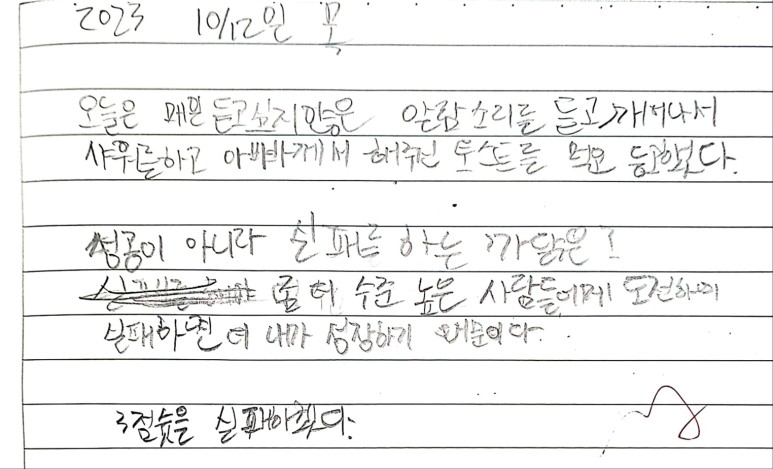 2023 10/12일 목
오늘은 매일 듣고싶지않은 알람소리를 듣고 깨어나서
샤워를하고 아빠께서 해주신 토스트를 먹고 등교했다.
성공이 아니라 실패를 하는 까닭은!
좀 더 수준 높은 사람들에게 도전하여
실패하면 더 내가 성장하기 때문이다.
3점슛을 실패하였다.